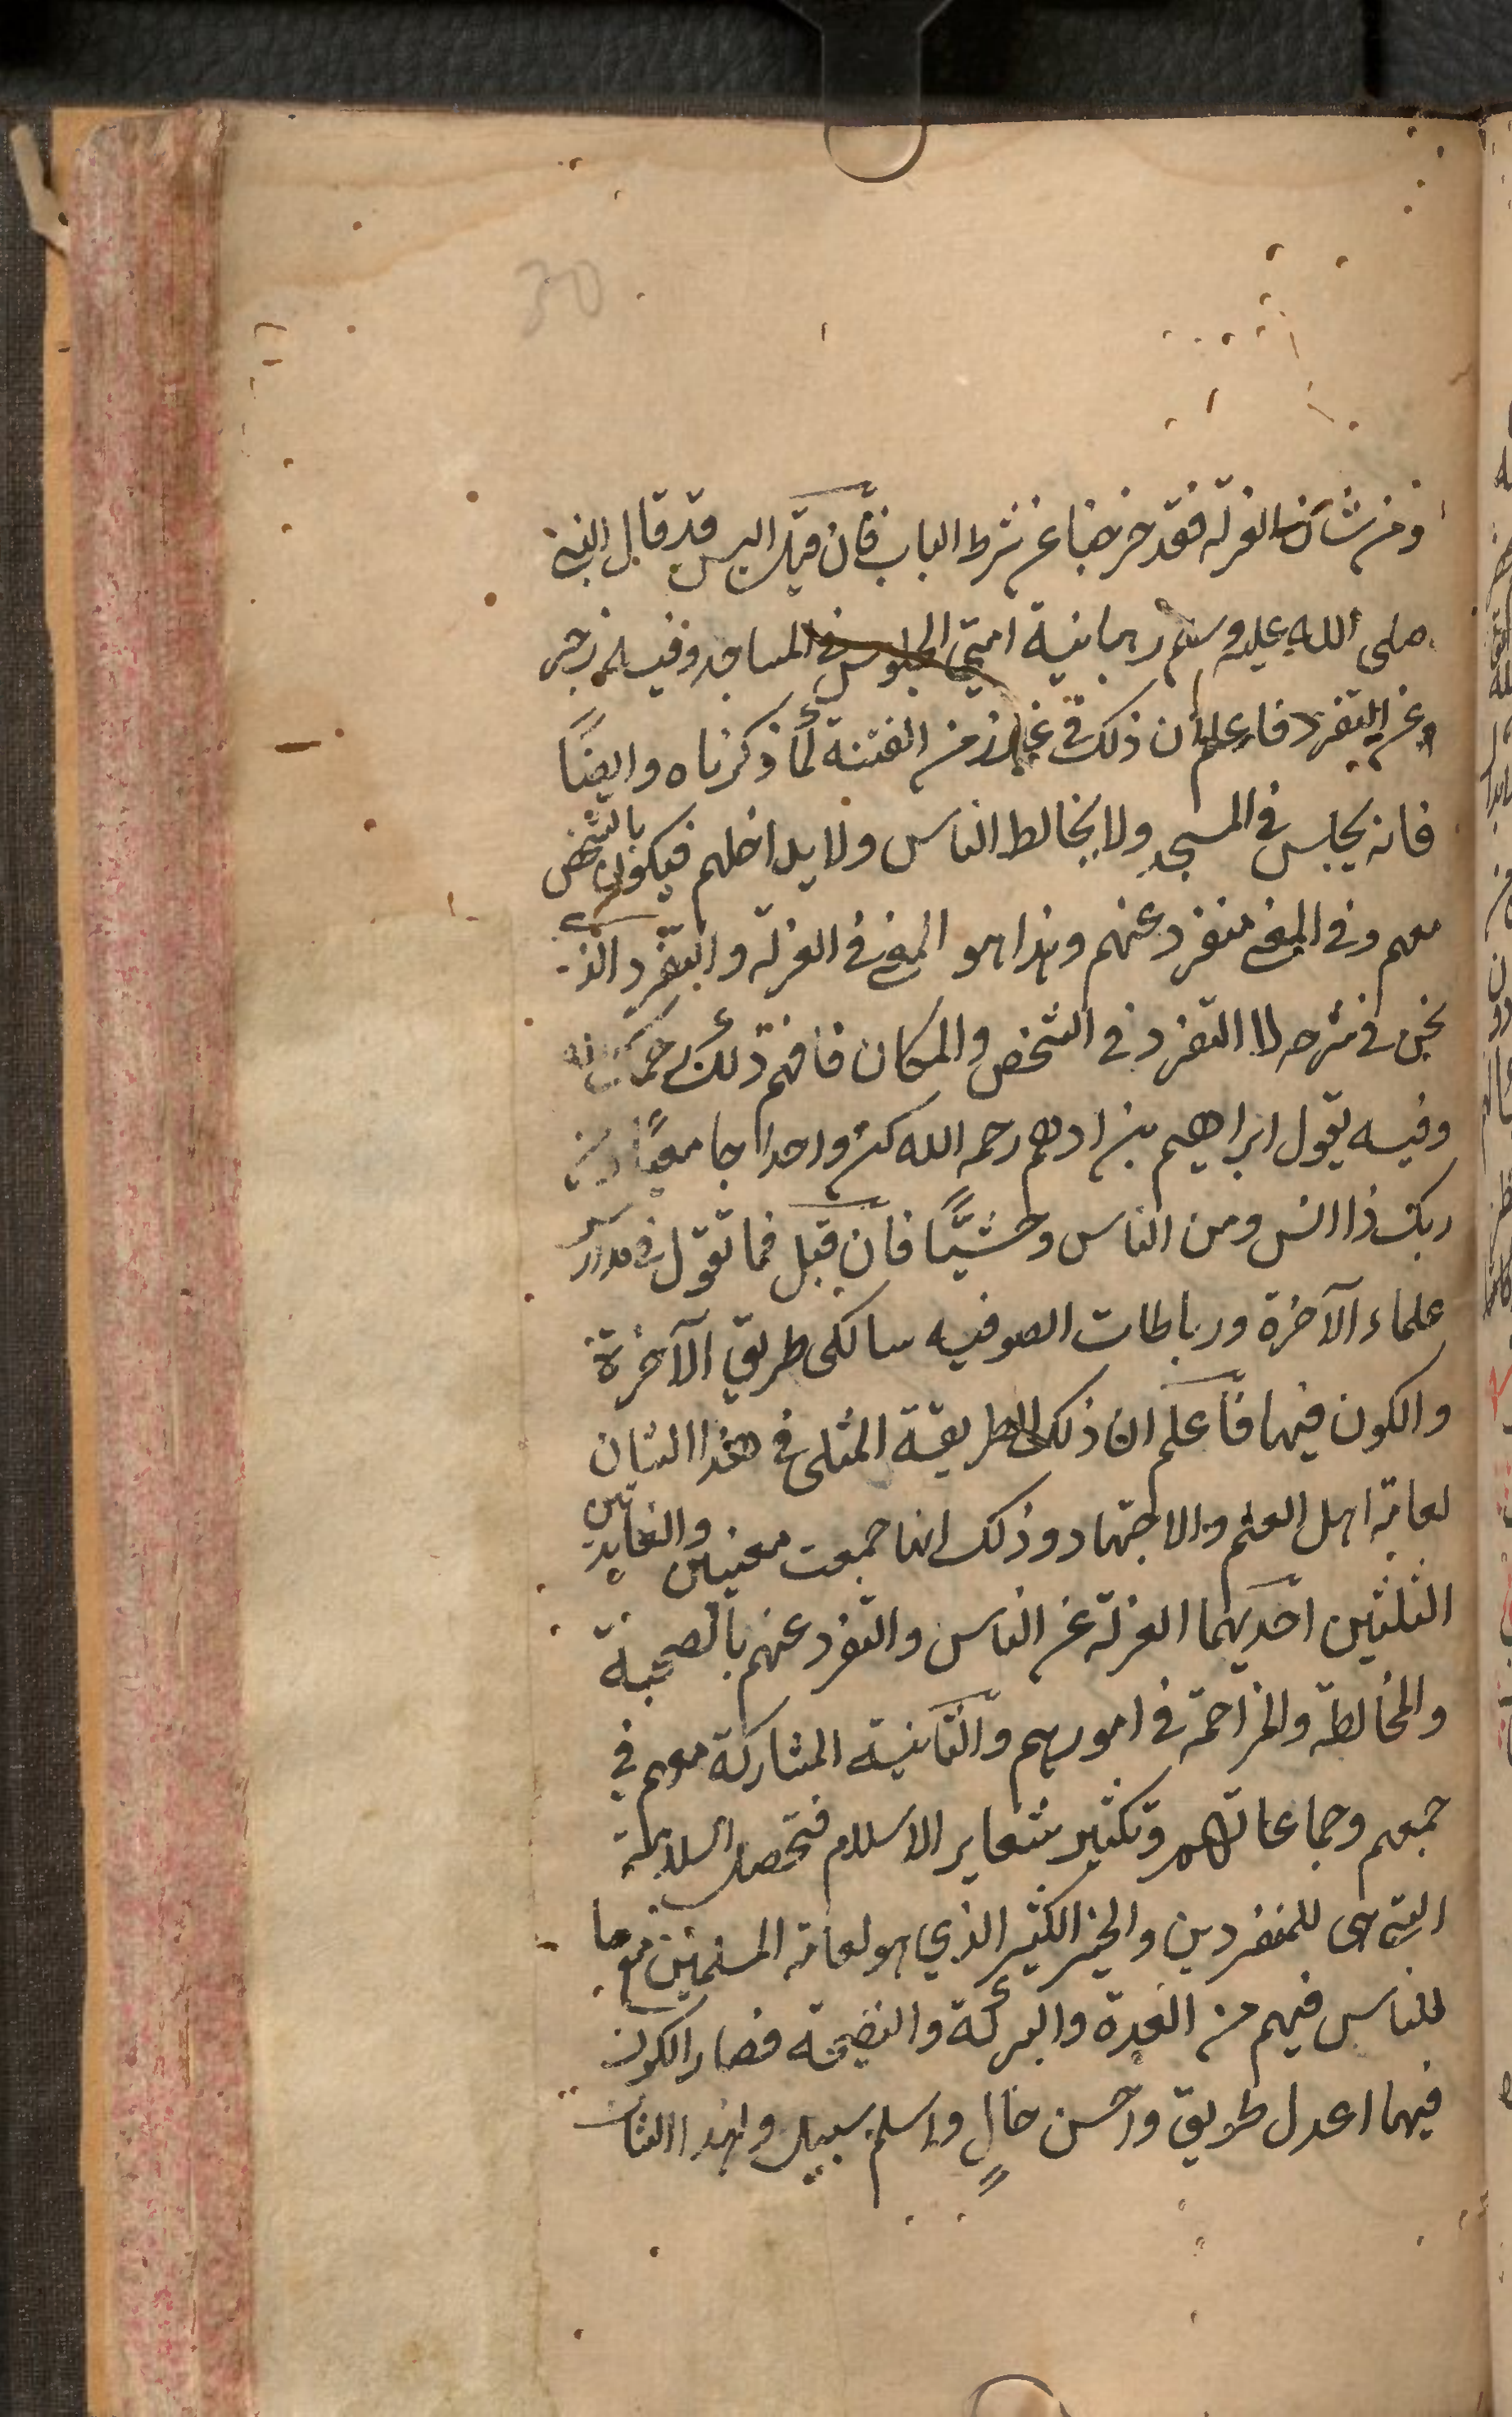 30
ومن شأن العزلة فقد خرجنا عن شرط الباب فان قيل اليس قد قال النبي
صلى الله عليه وسلم رهبانية امتي الجلوس في المساجد وفيه زجر
عن التفرد فاعلم ان ذلك في غير زمن الفتنة لما ذكرناه وايضًا
فانه يجلس في المسجد ولا يخالط الناس ولا يداخلهم فيكون بالشخص
معهم وفي المعنى منفرد عنهم وهذا هو المعنى في العزلة والتفرد الذي
نحن في شرحه لا التفرد في الشخص والمكان فافهم ذلك رحمك الله
وفيه يقول ابراهيم بن ادهم رحمه الله كن واحدا جامعيًا ومن
ربك ذا انس ومن الناس وحشيًّا فان قيل فما تقول في مدارس
علماء الآخرة ورباطات الصوفيه سالكى طريق الآخرة
والكون فيها فاعلم ان ذلك الطريقة المثلى في هذا الشان
لعامة اهل العلم والاجتهاد وذلك انها جمعت معنيين والفايدتين
الثلثين احديهما العزلة عن الناس والتفرد عنهم بالصحبة
والمخالطة والمزاحمة في امورهم والثانية المشاركة معهم في
جمعهم وجماعاتهم وتكثير شعاير الاسلام فتحصل السلامة
التي هى للمنفردين والخير الكثير الذي هو لعامة المسلمين مع ما
للناس فيهم من القدوة والبركة والنصيحة فصار الكون
فيها اعدل طريق واحسن حالٍ واسلم سبيل ولهذا الشان